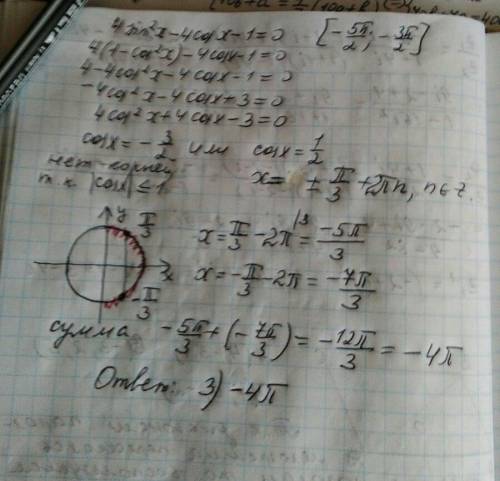 4sin²x-4cosx-1=0 [-5π/2; -3π/2]
4(1-cos²x)-4cosx-1=0
4-4cos²x-4cosx-1=0
-4cos²x-4cosx+3=0
4cos²x+4cosx-3=0
cosx=-3/2 или cosx=1/2
нет корней
т.к. |cosx|≤1
x= ±π/3+2πn, n∈z.
y π/3
x
-π/3
x=π/3-2π=-5π/3
x=-π/3-2π=-7π/3
сумма -5π/3+(-7π/3)=-12π/3=-4π
Ответ: 3) -4π